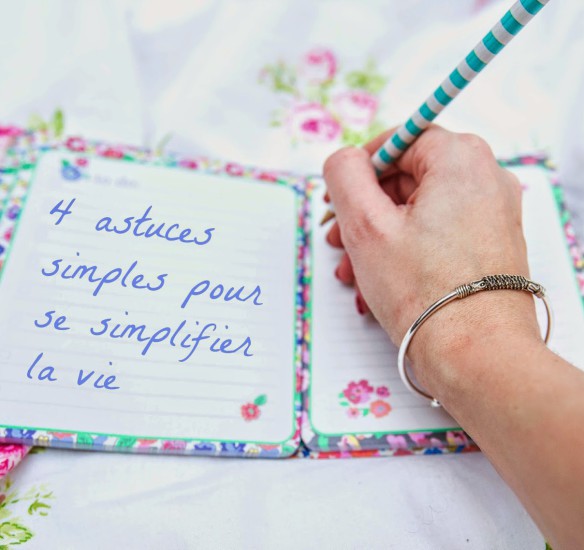 4 astuces
simples pour
se simplifier
la vie